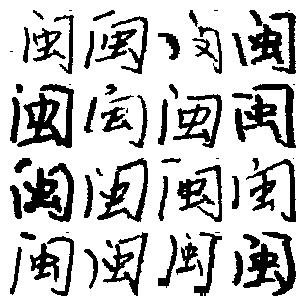 闽闽闽
闽闽闽
闽闽闽闽
闽闽闽闽